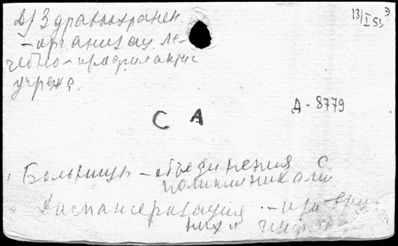 д/Здравоохранен.
- организац. ле-
чебно-профилактич
учрежд.
13/I 53
СА
Д-8779
Больницы - объединения с
поликлиниками
Диспансеризация -